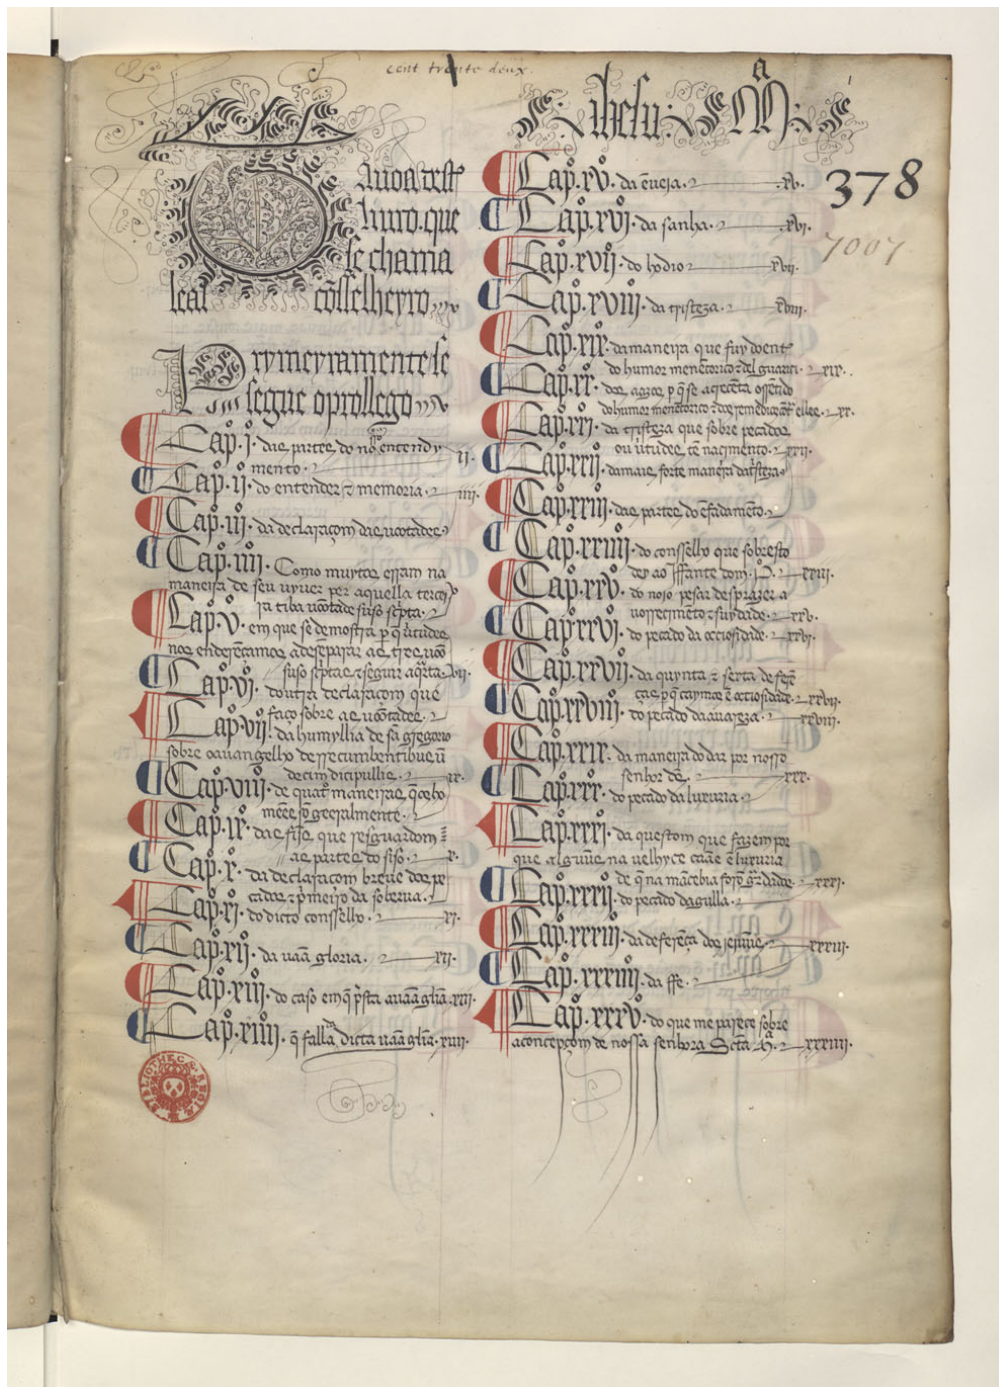 cent trente deux.
Ihesu: Ma:
378
7007
Tauoa dest
liuro. que
se chama
leal cõsselheyro
Prymeyramente se
segue o prollego
Cap. i. das partes do nosso entendy
mento. ii.
Cap. ii. do entender ⁊ memoria. iiii.
Cap. iii. da declaraçom das uõtades
Cap. iiii. Como muytos erram na
maneira de seu uyuer per aquella tercey
ra tiba uõtade suso scripta. v.
Cap. v. em que se demostra per que uirtudes
nos enderençamos a desemparar as tres uõo
suso scriptas ⁊ seguir a quarta. vii.
Cap. vi. doutra declaraçom que
faço sobre as uõtades.
Cap. vii. da humyllia de sã gregorio
sobre o auangelho de rrecumbentibus ũ
decim dicipullis. ix.
Cap. viii. de quatro maneiras que recebo
mees so geeralmente.
Cap. ix. das fijs que resguardom
as partes do siso. x.
Cap. x. da declaraçom breue dos pe
cados ⁊ primeiro da soberua.
Cap. xi. do dicto conssello. xi.
Cap. xii. da uaã gloria. xii.
Cap. xiii. do caso em que presta a uaã glia. xiii.
Cap. xiiii. que falla da dicta uaã glia. xiiii.
BIBLIOTHECÆ REGIÆ
Cap. xv. da ẽueja. xv.
Cap. xvi. da sanha. xvi.
Cap. xvii. do hodio xvii.
Cap. xviii. da tristeza. xviii.
Cap. xix. da maneira que fuy doente
do humor menẽcorico ⁊ del guareci. xix.
Cap. xx. dos aazos per que se acrecẽta o ssendo
do humor menẽcorico ⁊ dos remedios contra elles. xx.
Cap. xxi. da tristeza que sobre pecados
ou uirtudes tẽ nacimento. xxi.
Cap. xxii. da mais forte maneira da tristeza
Cap. xxiii. das partes do ẽfadamẽto.
Cap. xxiiii. do conssello que sobresto
dey ao Iffante dom. P. xxiii.
Cap. xxv. do nojo pesar desprazer a
uorrecimẽto ⁊ suydade. xxv.
Cap. xxvi. do pecado da occiosidade. xxvi.
Cap. xxvii. da quynta ⁊ sexta deferẽ
ças per que caymos ẽ occiosidade. xxvii.
Cap. xxviii. do pecado da auareza. xxviii.
Cap. xxix. da maneira do dar por nosso
senhor ds̃. xxx.
Cap. xxx. do pecado da luxuria.
Cap. xxxi. da questom que fazem por
que algũus na uelhyce caae ẽ luxuria
de que na mãcebia forõ guardados xxxi.
Cap. xxxii. do pecado da gulla.
Cap. xxxiii. da deferẽça dos jejũus. xxxiii.
Cap. xxxiiii. da ffe.
Cap. xxxv. do que me parece sobre
a concepçom de nossa senhora Scta M. xxxiiii.